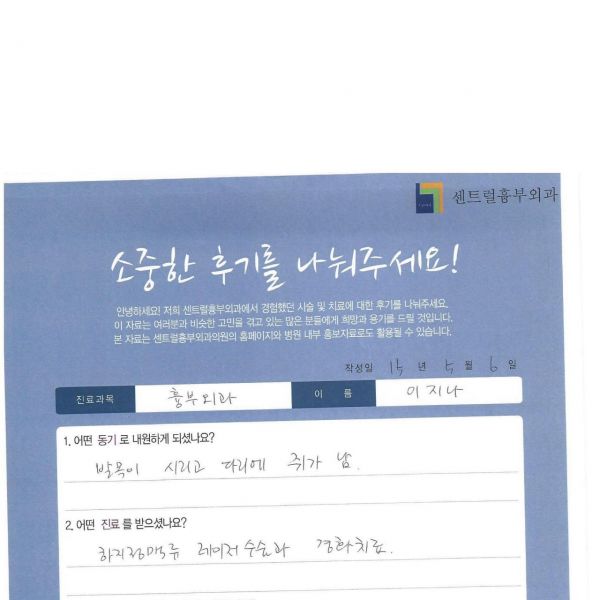 센트럴흉부외과
소중한 후기를 나눠주세요!
안녕하세요! 저희 센트럴흉부외과에서 경험했던 시술 및 치료에 대한 후기를 나눠주세요.
이 자료는 여러분과 비슷한 고민을 겪고 있는 많은 분들에게 희망과 용기를 드릴 것입니다.
본 자료는 센트럴흉부외과의원의 홈페이지와 병원 내부 홍보자료로도 활용될 수 있습니다.
작성일 15 년 5 월 6 일
진료과목 흉부외과 이 름 이지나
1. 어떤 동기로 내원하게 되셨나요?
발목이 시리고 다리에 쥐가 남.
2. 어떤 진료를 받으셨나요?
하지정맥류 레이저수술과 경화치료.